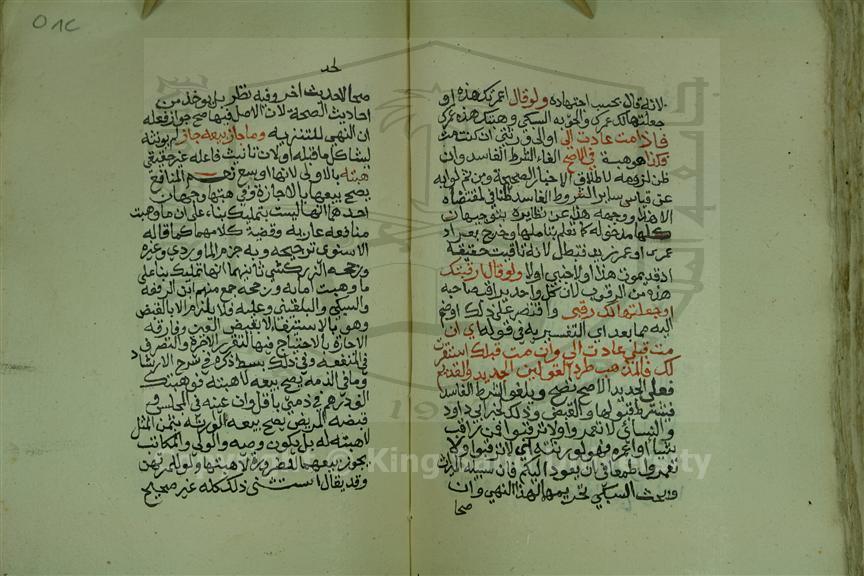 لانه قال بحسب اجتهاده ولو قال اعمرتك هذه او
جعلتها لك عمرى والحق به السبكي وهبتك هذه عمرى
فاذا مت عادت الى او الى ورثتي ان كنت مت
فكذا هو هبة في الاصح الغاء للشرط الفاسد وان
ظن لزومه لاطلاق الاخبار الصحيحة ومن ثم
عن قياس سائر الشروط الفاسدة
الاخذ ووجهه هذا عن نظايره بتوجيهات
كلها مدخولة كما تعلم بتاملها وخرج بعمرك
عمرى او عمر زيد فتبطل لانه تاقيت حقيقة
اذ قد يموت هذا او الاجنبي اولا ولو قال ارقبتك
هذه من الرقوب لان كل واحد يرقب صاحبه
او جعلتها لك رقبى واقتصر على ذلك او ضم
اليه ما بعد اى التفسيرية في قوله اي ان
مت قبلي عادت الى وان مت قبلك استقرت
لك فالمذهب طرد القولين الجديد والقديم
فعلى الجديد الاصح يصح ويلغو الشرط الفاسد
فيشترط قبولها والقبض وذلك لخبر ابي داود
والنسائي لا تعمروا ولا ترقبوا فمن ارقب
شيئا او اعمره فهو لورثته اي لا ترقبوا ولا
تعمروا طمعا في ان يعود اليكم فان سبيله الميراث
وبحث السبكي تحريمها لهذا النهي وان
صحا
صحا لاحاديث اخر وفيه نظر بل يوخذ من
احاديث الصحة لان الاصل فيما صح جواز فعله
ان النهي للتنزيه وما جاز بيعه جاز لم يونثه
ليشاكل ما قبله او لان تانيث فاعله غير حقيقي
هبته بالاولى لانها اوسع نعم المنافع
يصح بيعها بالاجارة وفي هبتها وجهان
احدهما انها ليست بتمليك بناء على ان ما وهبت
منافعه عارية وقضية كلامهما كما قاله
الاسنوي ترجيحه وبه جزم الماوردي وغيره
ورجحه الزركشي ثانيهما انها تمليك بناء على
ما وهبت امانة ورجحه جمع منهم ابن الرفعة
والسبكي والبلقيني وعليه فلا يلزم الا بالقبض
وهو بالاستيفاء لا بقبض العين وفارقت
الاجارة بالاحتياج فيها لتقرر الاجرة والتصرف
في المنفعة وفي ذلك بسط ذكرته في شرح الارشاد
وما في الذمة يصح بيعه لا هبته كوهبتك
الف درهم في ذمتي باق وان عينه في المجلس و
قبضه المريض يصح بيعه لورثته بثمن المثل
لا هبته له بل يكون وصية والولي والمكاتب
يجوز بيعهما لا هبتهما
وقد يقال استثنى ذلك كله غير صحيح
© King